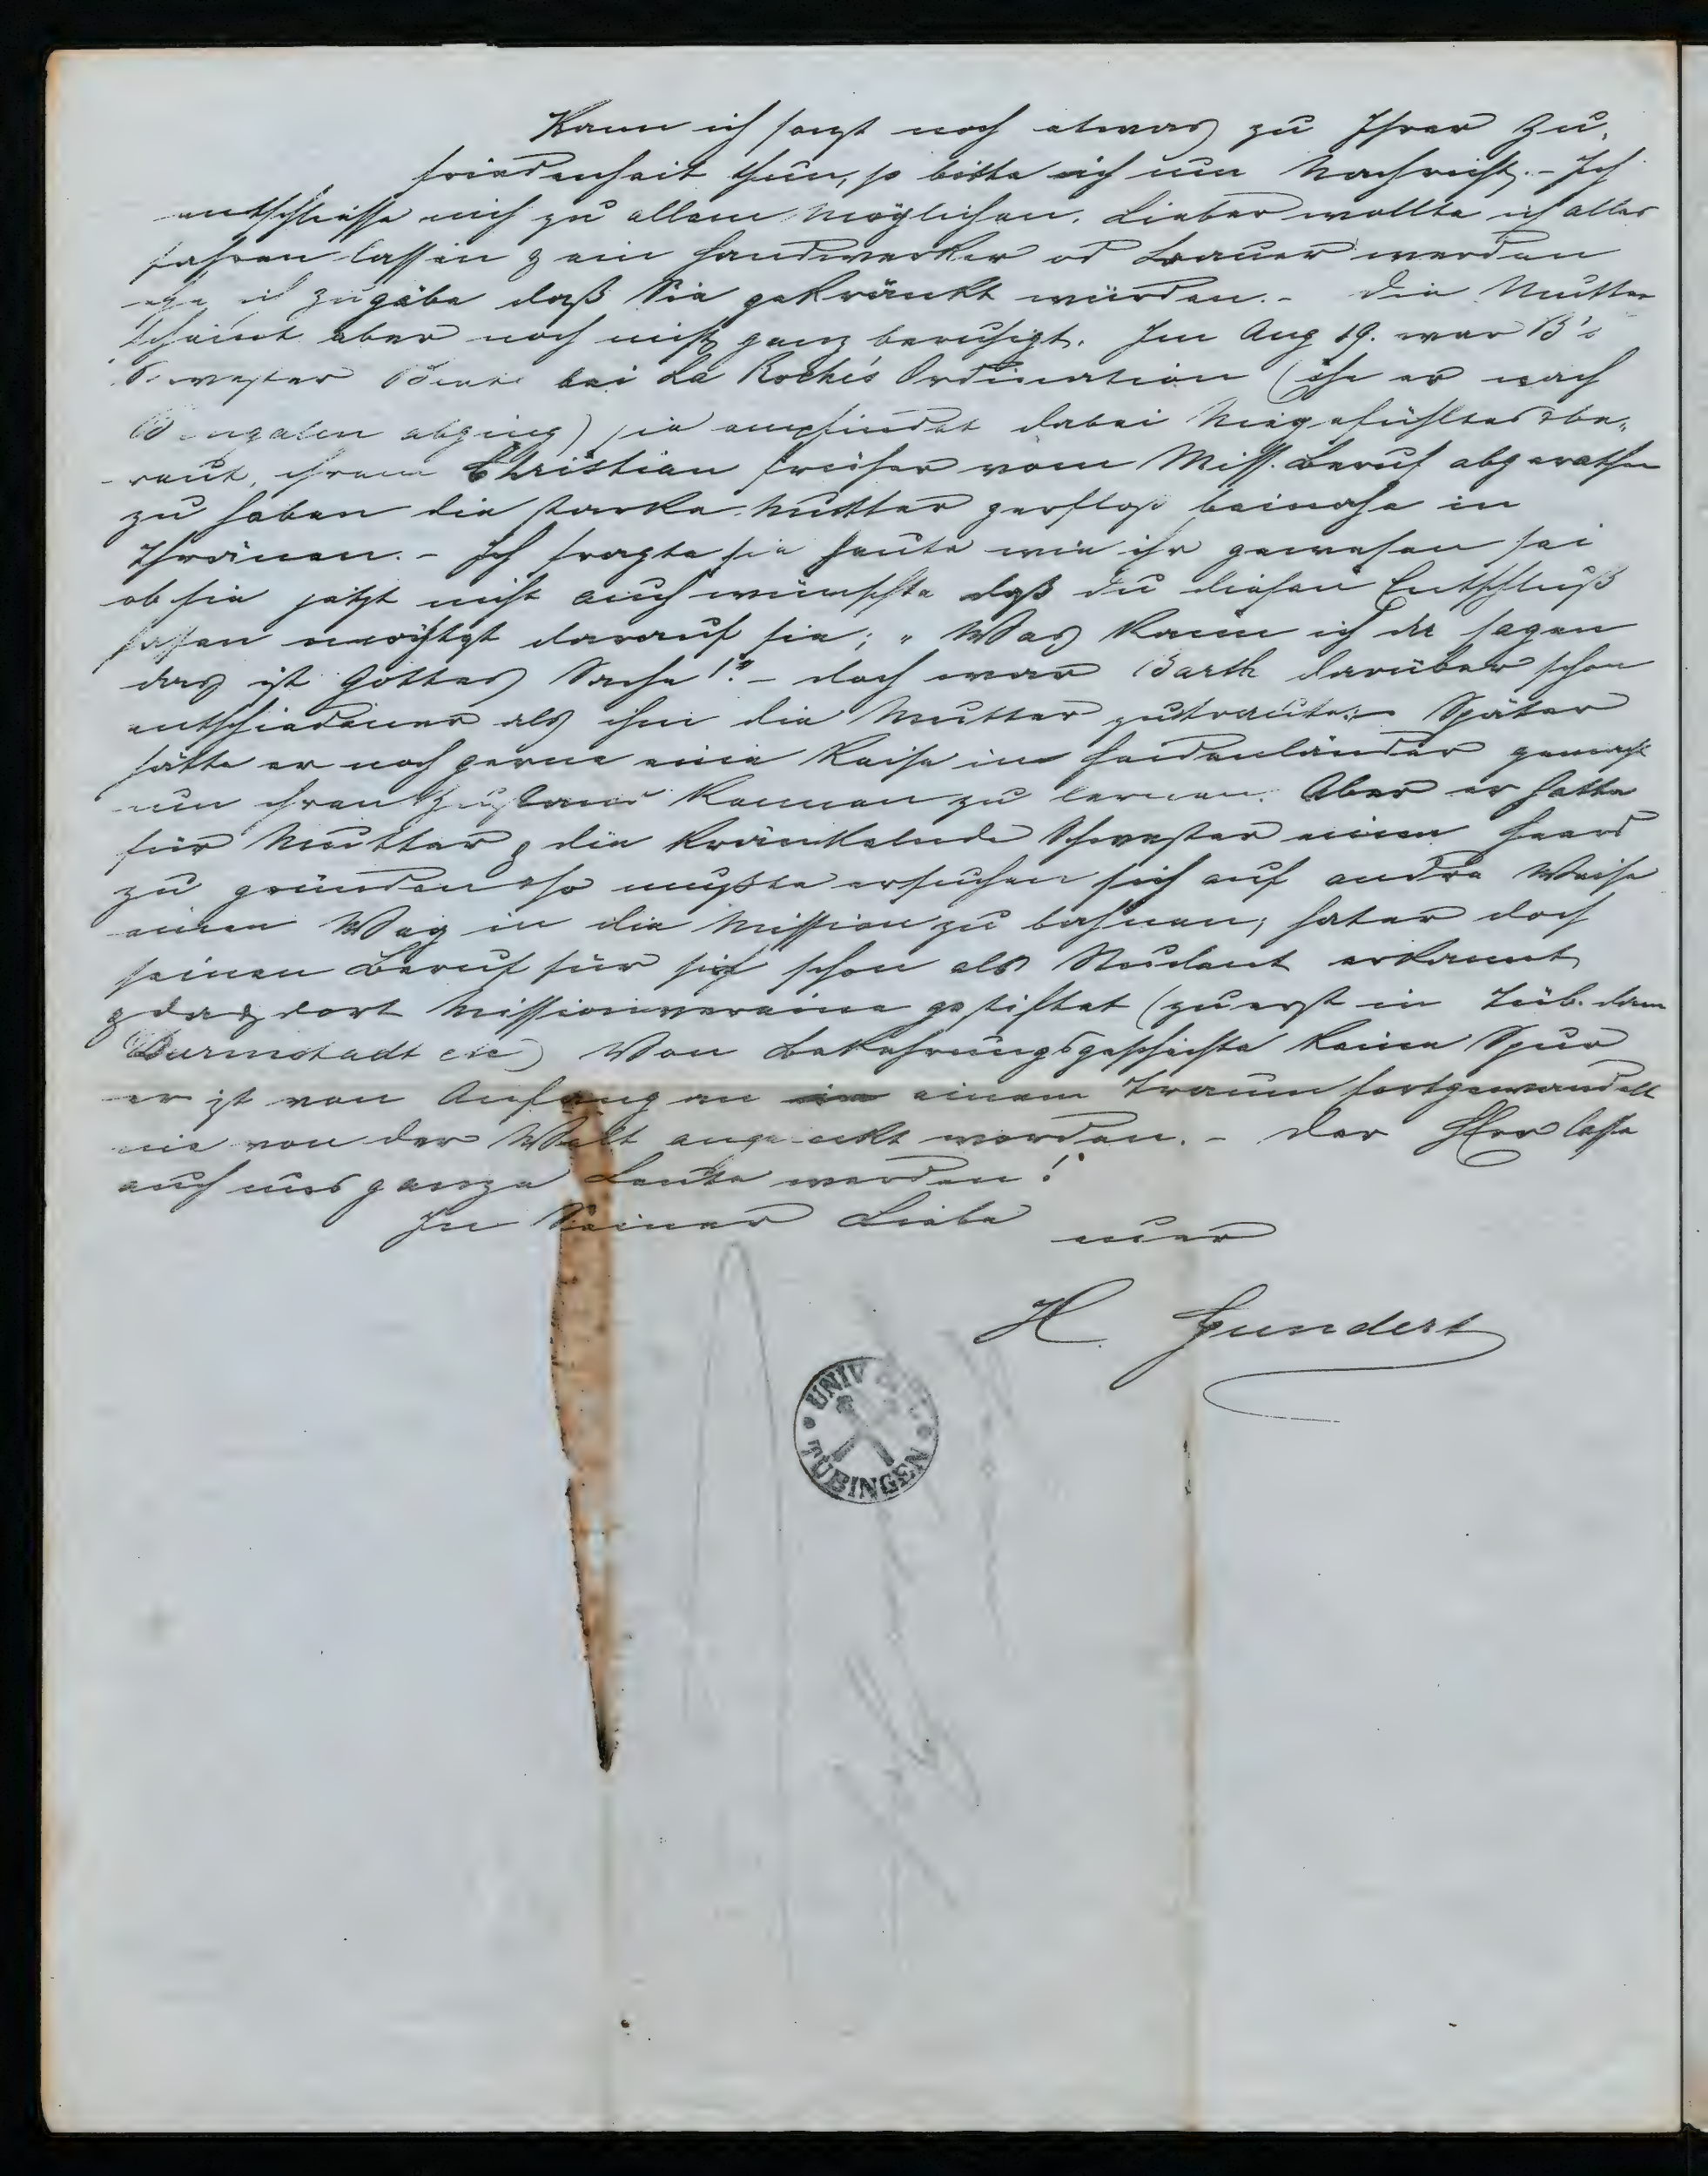 Kann ich sonst noch etwas zu Ihrer Zu-
friedenheit thun, so bitte ich um Nachricht. - Ich
entschliesse mich zu allem möglichen. Lieber wollte ich alles
fahren lassen & ein Handwerker od Bauer werden
ehe ich zugäbe daß Sie gekränkt würden. - Die Mutter
scheint aber noch nicht ganz beruhigt. Im Aug 19. war B's
Schwester bei La Roche's Ordination (ehe er nach
Bengalen abging) sie empfindet dabei Niegefühltes & be-
reut, ihrem Christian früher vom Miss. Beruf abgerathen
zu haben die starke Mutter zerfloß beinahe in
Thränen. - Ich fragte sie heute wie ihr gewesen sei
ob sie jetzt nicht auch wünschte daß du diesen Entschluß
fassen möchtest darauf sie; "Was kann ich da sagen
das ist Gottes Sache!" - doch war Barth darüber schon
entschiedener als ihm die Mutter zutraute. - Später
hätte er noch gerne eine Reise in Heidenländer gemacht
um ihren Zustand kennen zu lernen. Aber er hatte
für Mutter & die kränkelnde Schwester einen Heerd
zu gründen & so mußte er suchen sich auf andre Weise
einen Weg in die Mission zu bahnen; hat er doch
seinen Beruf für sich schon als Student erkannt
& da & dort Missionsvereine gestiftet (zuerst in Tüb. dann
Darmstadt etc) Von Bekehrungsgeschichte keine Spur
er ist von Anfang an einem Traum fortgewandelt
nie von der Welt worden. - Der HErr lasse
auch uns ganze Leute werden!
In Seiner Liebe euer
H. Gundert
UNIV
TÜBINGEN